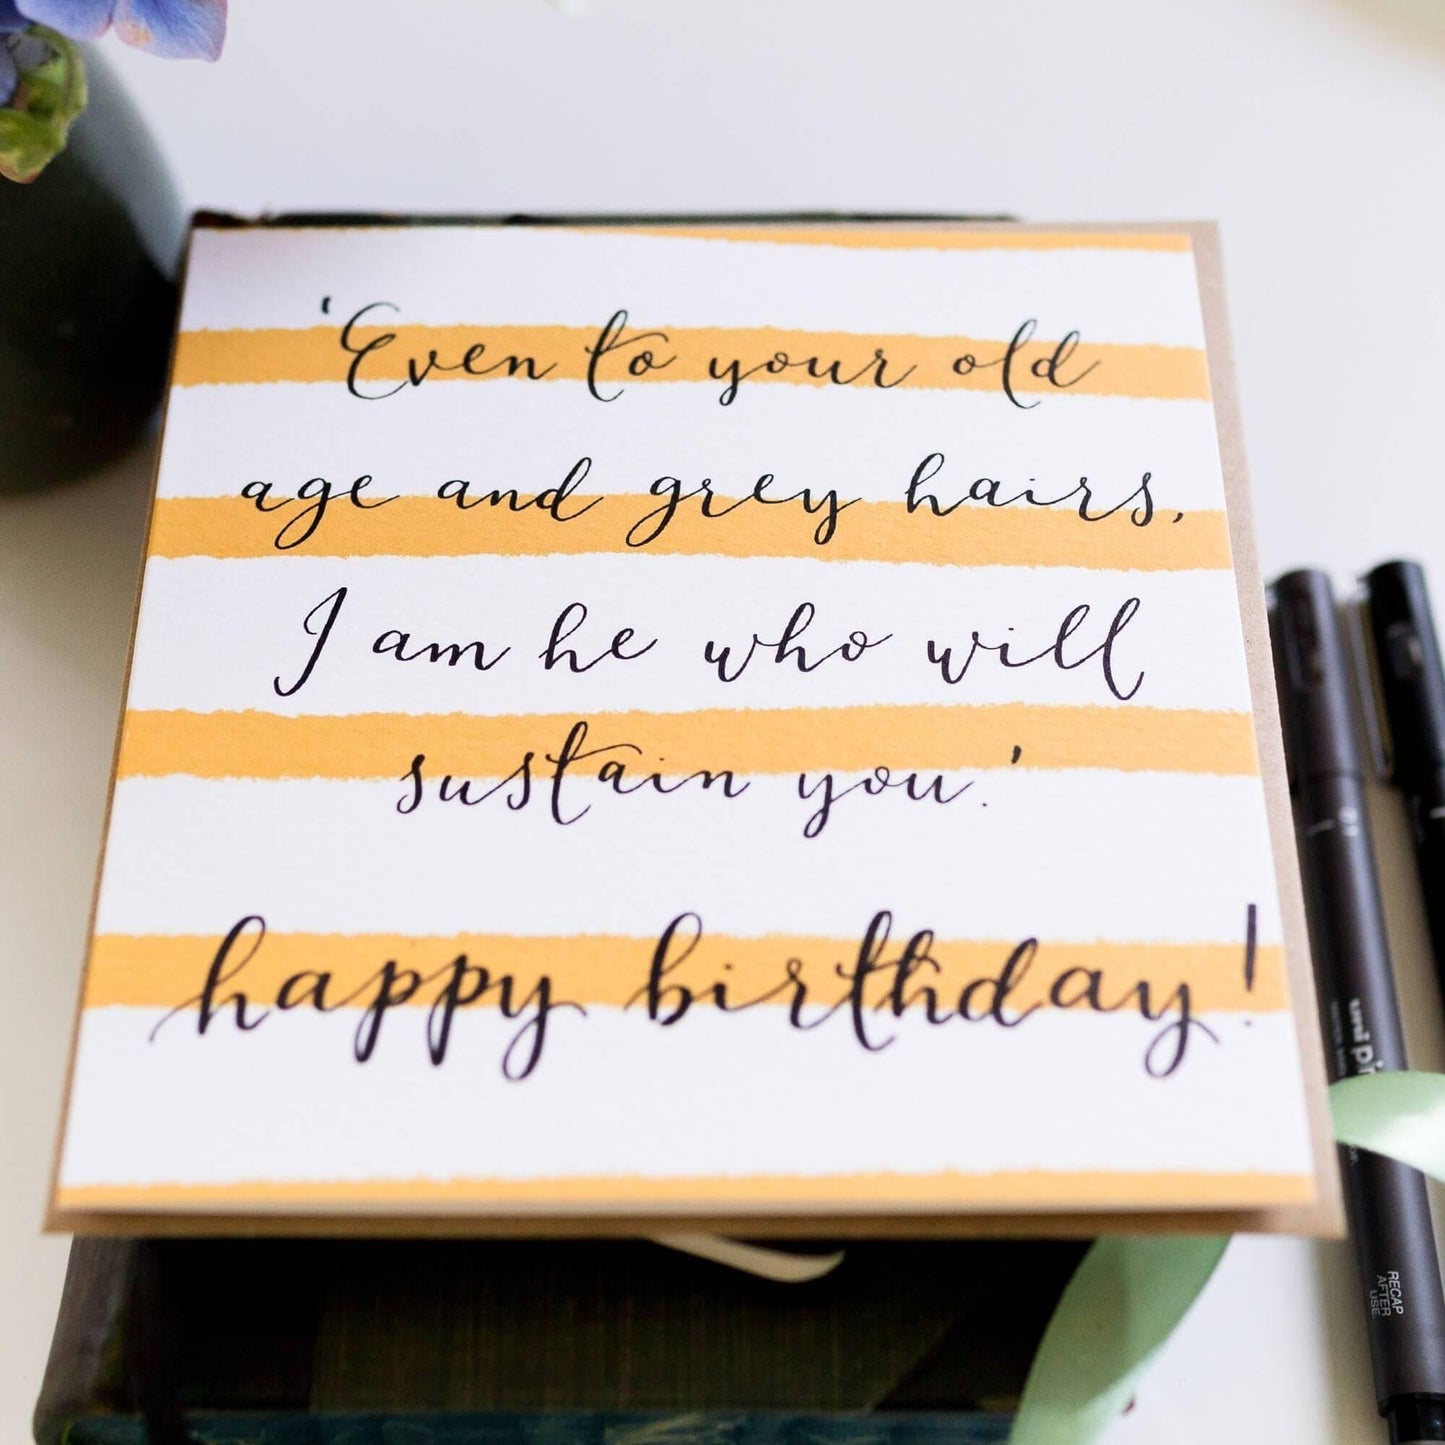 'Even to your old
age and grey hairs,
I am he who will
sustain you.'
happy birthday!
uni pi
RECAP
AFTER
USE